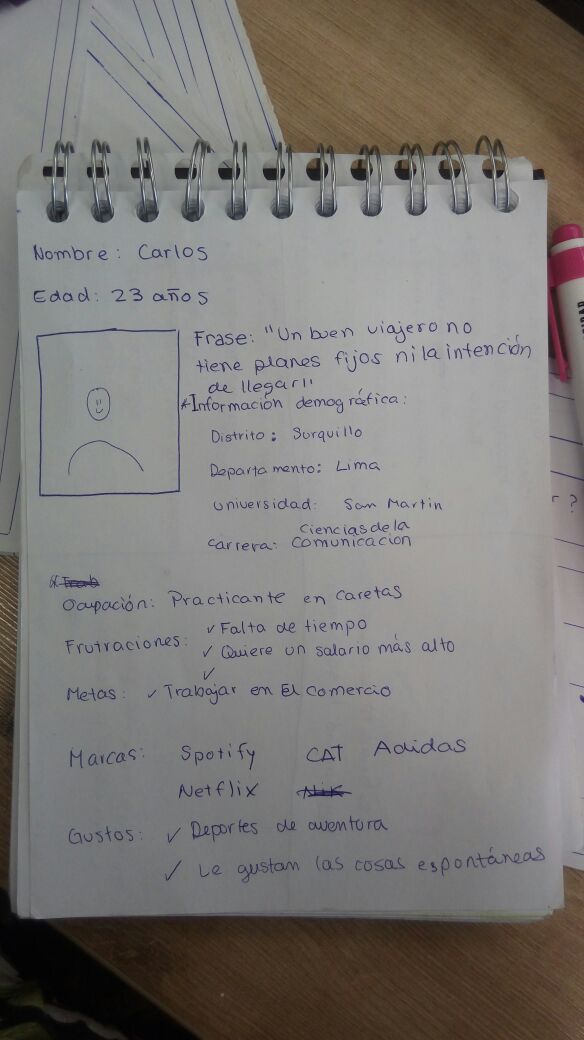 Nombre: Carlos
Edad: 23 años
Frase: "Un buen viajero no
tiene planes fijos ni la intención
de llegar"
*Información demográfica:
Distrito: Surquillo
Departamento: Lima
Universidad: San Martin
ciencias de la
Carrera: Comunicacion
Ocupación: Practicante en Caretas
Frutraciones: ✓ Falta de tiempo
✓ Quiere un salario más alto
✓
Metas: ✓ Trabajar en El Comercio
Marcas: Spotify CAT Adidas
Netflix
Gustos: ✓ Deportes de aventura
✓ Le gustan las cosas espontáneas